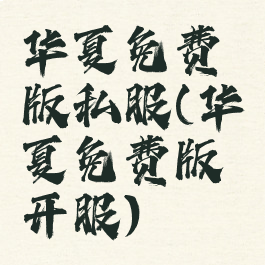 华夏免费
版私服(华
夏免费版
开服)